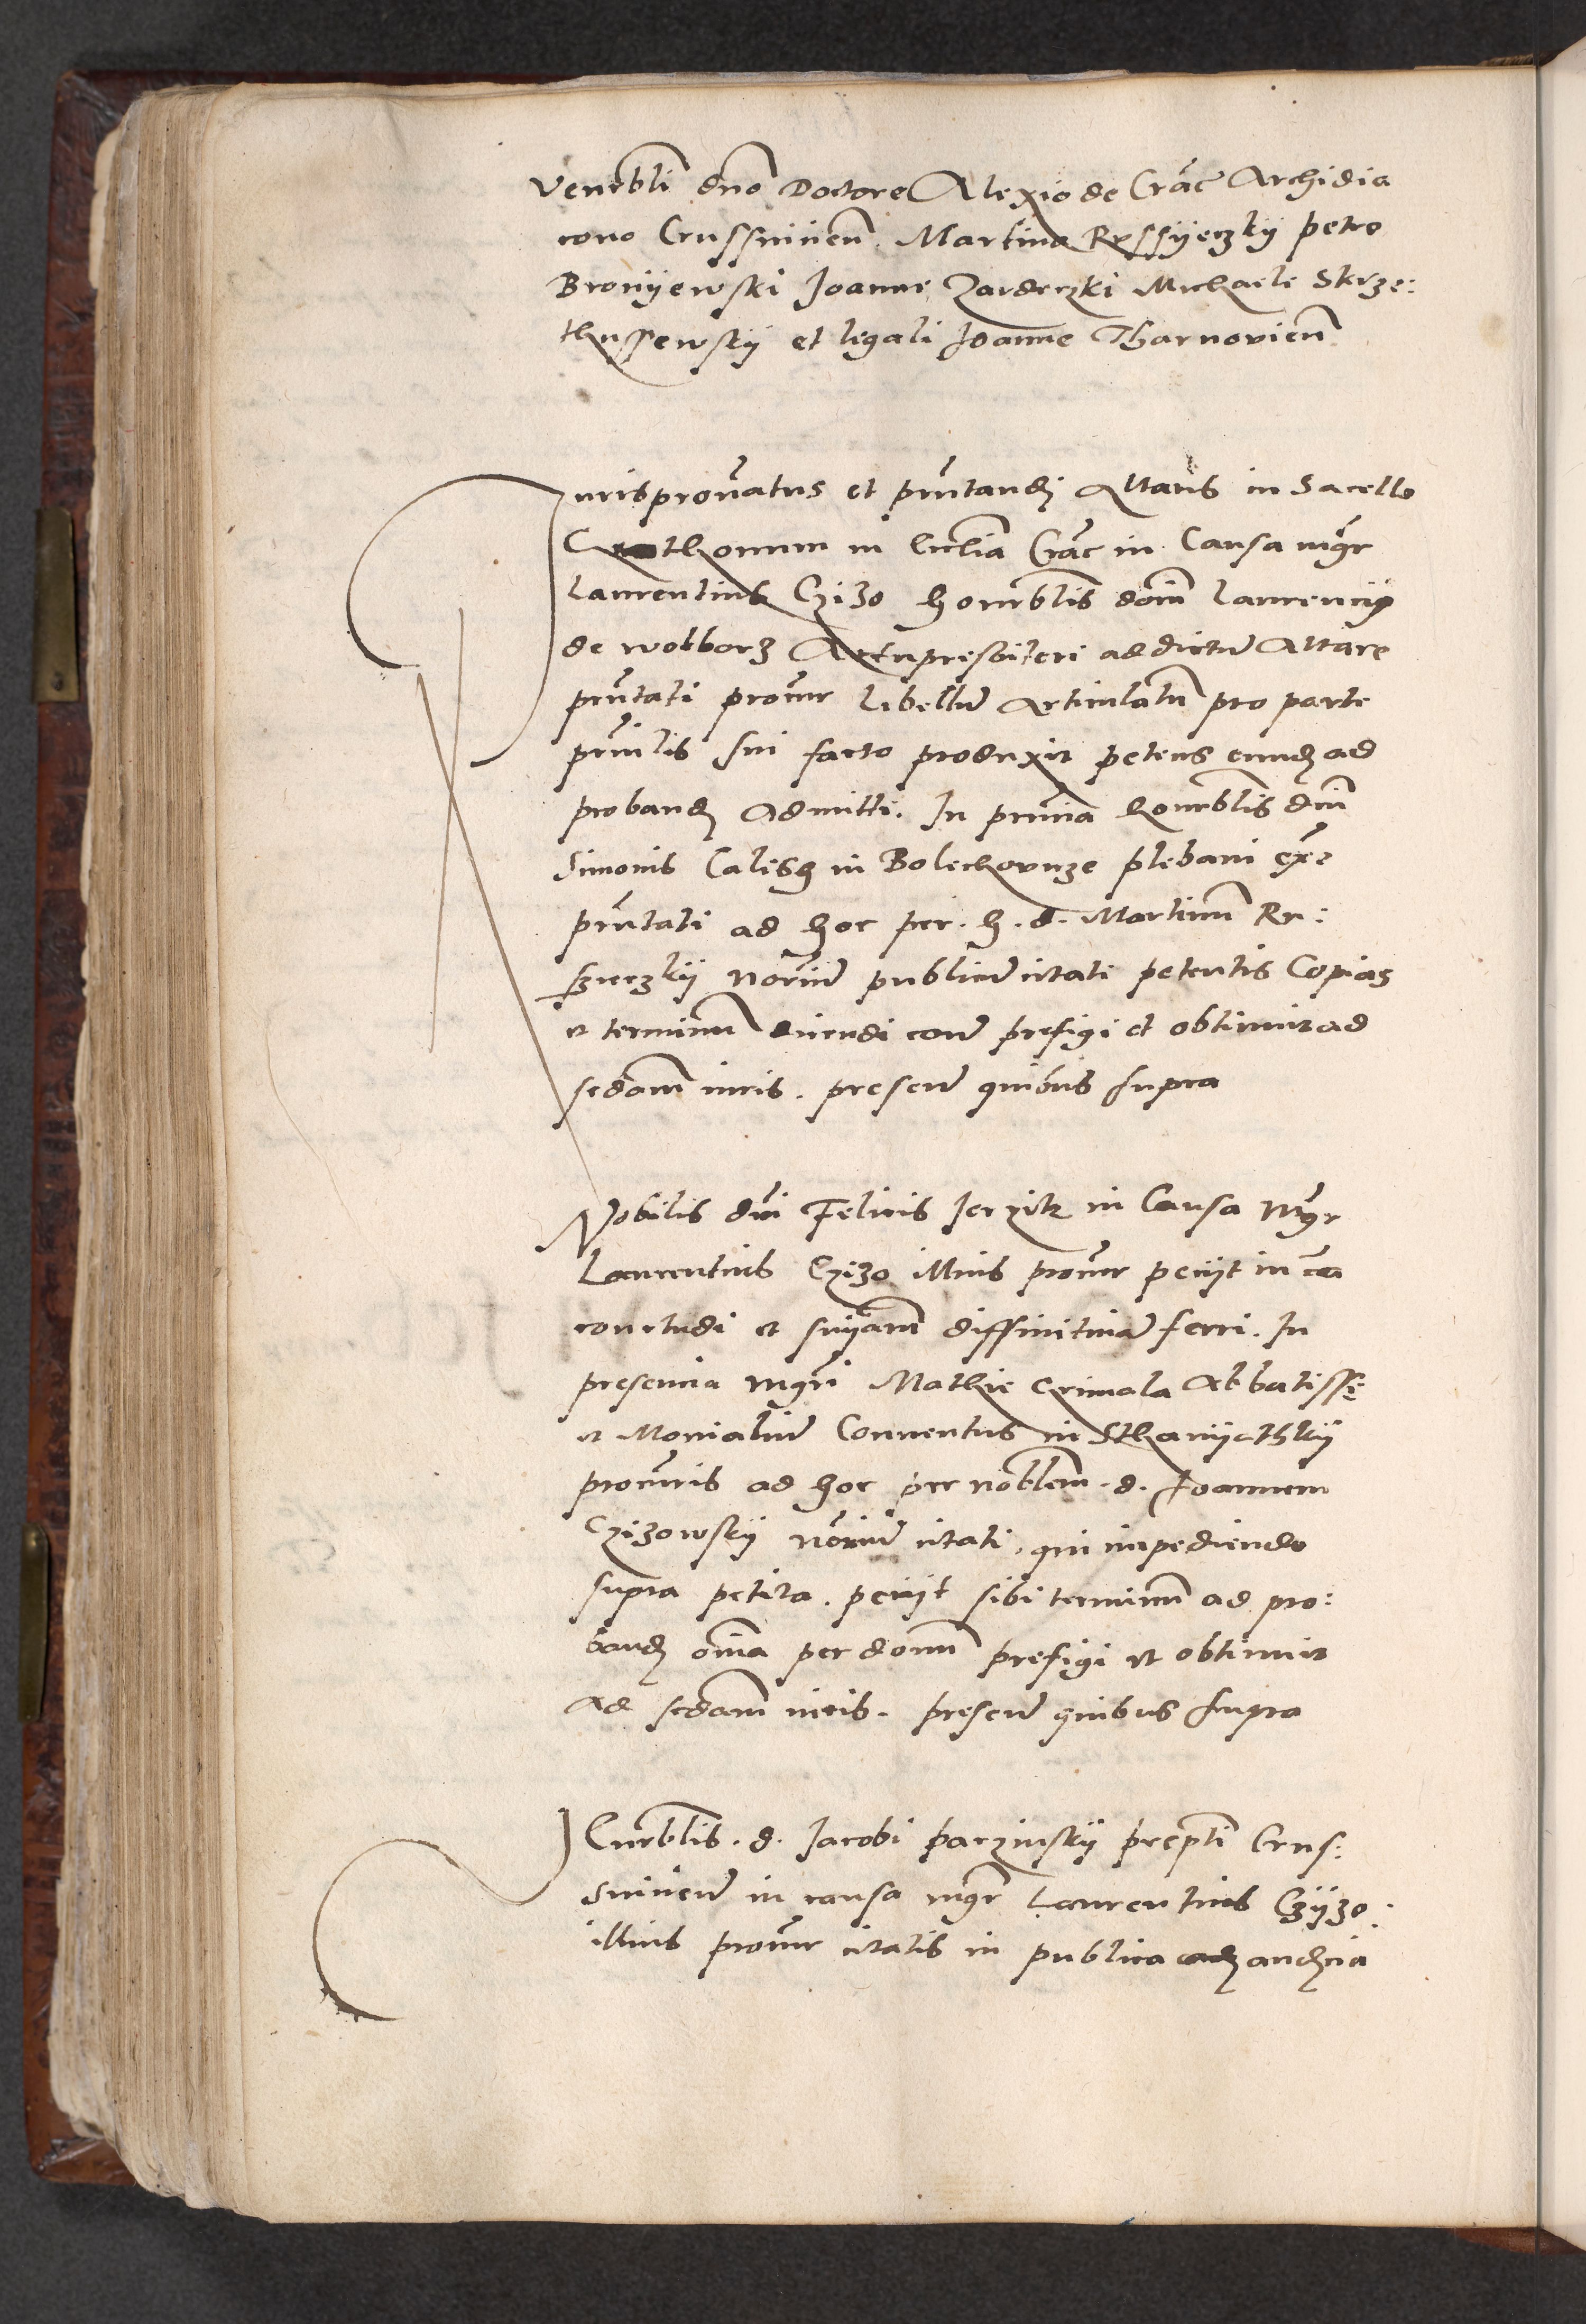 Venerbli dno Doctore Alexio de Crac Archidia
cono Crussvicien. Martino Rossyeczky petro
Bronyewski Joanne Zardeczki Michaele Skrze:
thussewsky et legali Joanne Tharnovien
Jurispronatus et pntandi Altaris in Sacello
in Ecclia Crac in Causa mgr
Laurentius Czizo honorblis domi Laurencij
de wolborz Archipresbiteri ad dictu Altare
pntati procur libellu Articulatu pro parte
prinlis sui facto produxit petens eund ad
proband Admitti. In pnncia honorblis dni
Simonis Calisch in Bolechovycze plebani ex:
pntati ad hoc per. h. d. Martinu Ro:
szyeczky notriu publicu citati petentis Copias
et terminu dicendi contr prefigi et obtinuit ad
sedam iuris. presen quibus supra
Nobilis dni Felicis Jerzik in Causa Mgr
Laurentius Czizo illius procur petijt in ca
concludi et snijam diffinitiva ferri. In
presencia mgri Mathie Crimala Abbatisse
et Monialiu Conventus in Sthanyathky
procuris ad hoc per noblem. d. Joannem
Czizowsky notriu citati, qui impediendo
supra petita. petijt sibi terminu ad pro:
band omia per domu prefigi et obtinuit
ad sedam iuris. presen quibus supra
Venerblis. d. Jacobi parzinsky prepti Crus:
svicien in causa mgr Laurentius Czyzo:
illius procur citatis in publica audcia